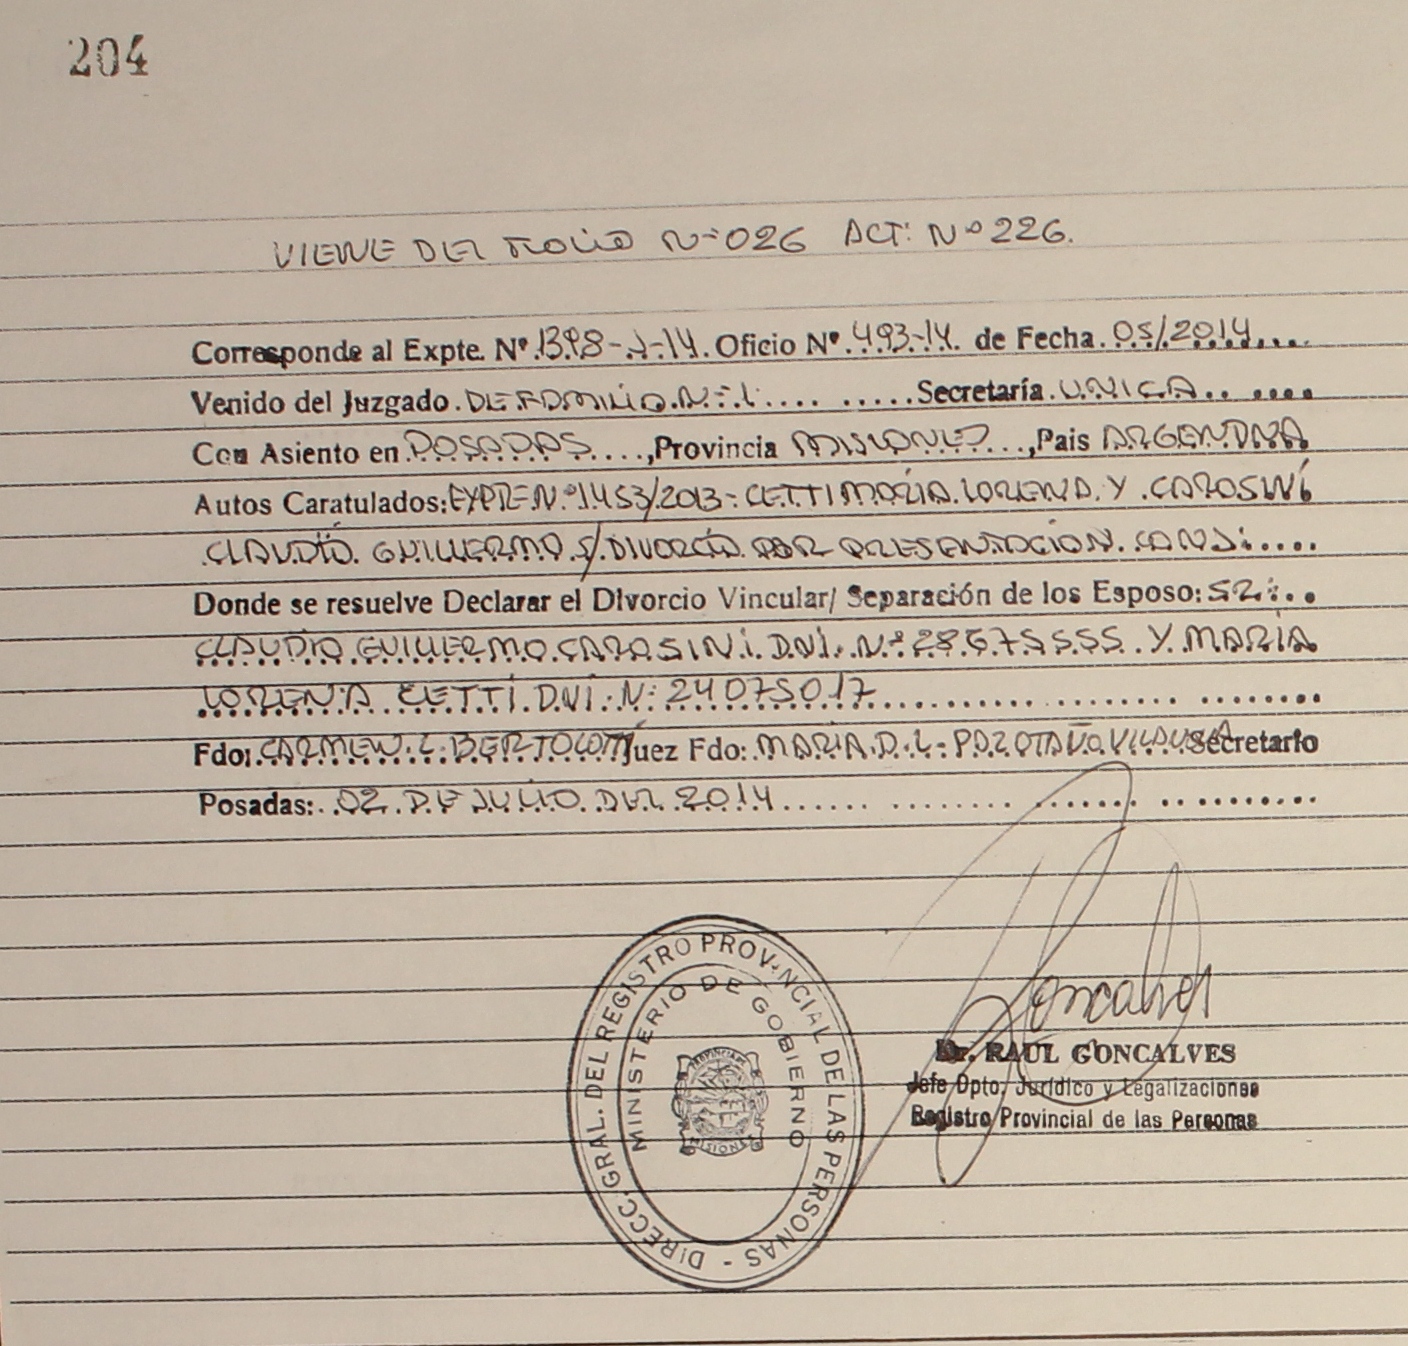 204
VIENE DEL FOLIO Nº 026 ACT: Nº 226.
Corresponde al Expte. Nº 1398-J-14. Oficio Nº 493-14. de Fecha 05/2014
Venido del Juzgado DE FAMILIA Nº 1 Secretaría UNICA
Con Asiento en POSADAS, Provincia MISIONES, Pais ARGENTINA
Autos Caratulados: EXPTE Nº 1453/2013- CETTI MARÍA LORENA Y CAROSINÍ
CLAUDIO GUILLERMO S/ DIVORCIO POR PRESENTACION CONJ:
Donde se resuelve Declarar el Divorcio Vincular/ Separación de los Esposo: SR:
CLAUDIO GUILLERMO CAROSINI DNI. Nº 28675555 Y MARÍA
LORENA CETTI DNI. N: 24075017
Fdo: CARMEN. L. Juez Fdo: MARIA D. L. Secretario
Posadas: 02 DE JULIO DEL 2014
DIRECC. GRAL. DEL REGISTRO PROVINCIAL DE LAS PERSONAS -
MINISTERIO DE GOBIERNO
PROVINCIA DE
MISIONES
Goncalves
Dr. RAUL GONCALVES
Jefe Dpto. Jurídico y Legalizaciones
Registro Provincial de las Personas